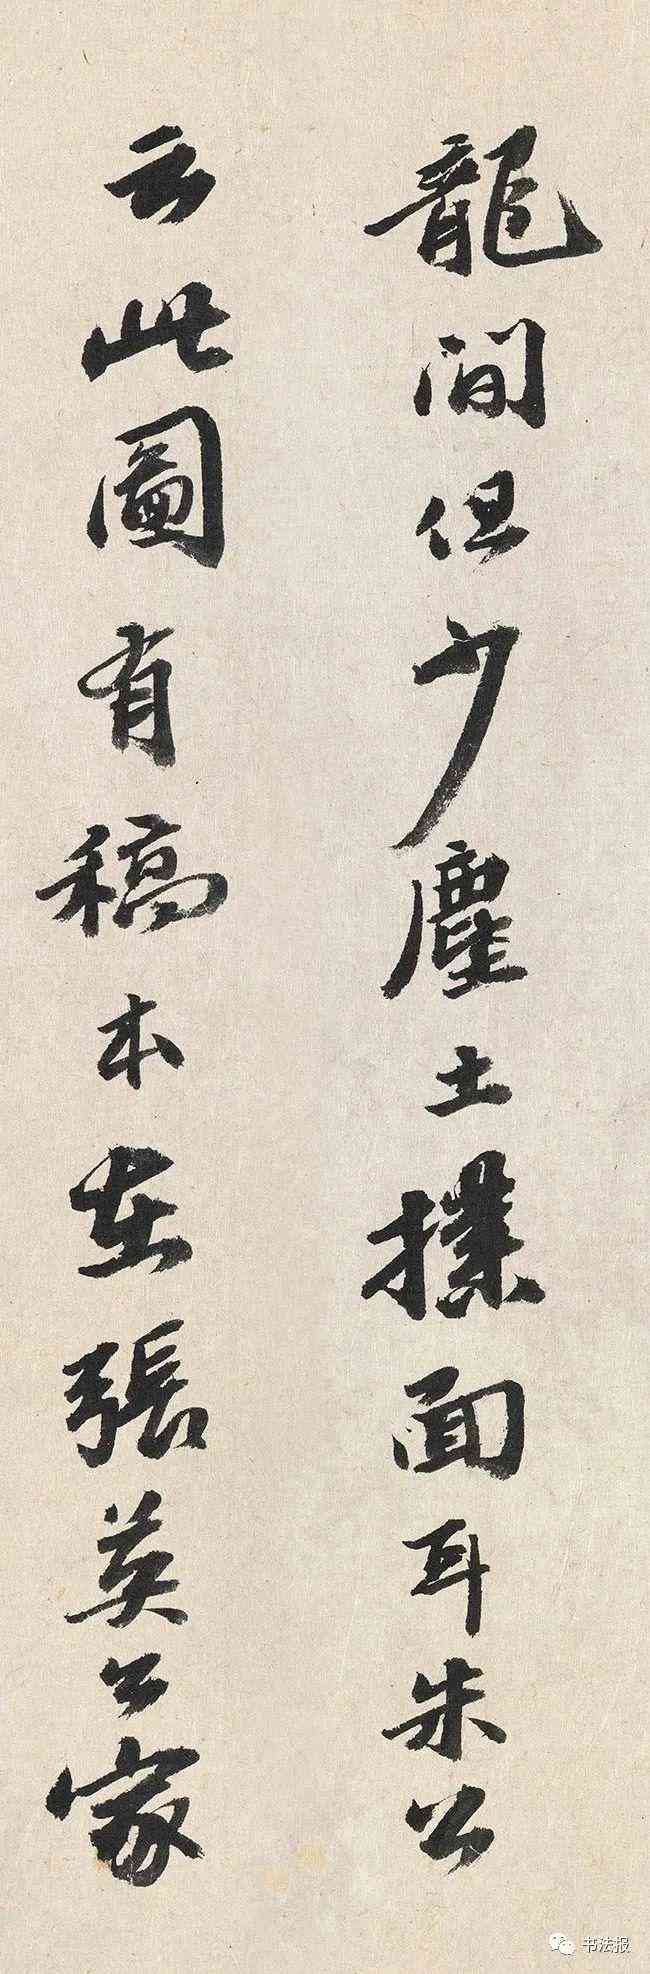 龍間但少塵土撲面耳朱公
云此圖有稿本在張英公家
书法报